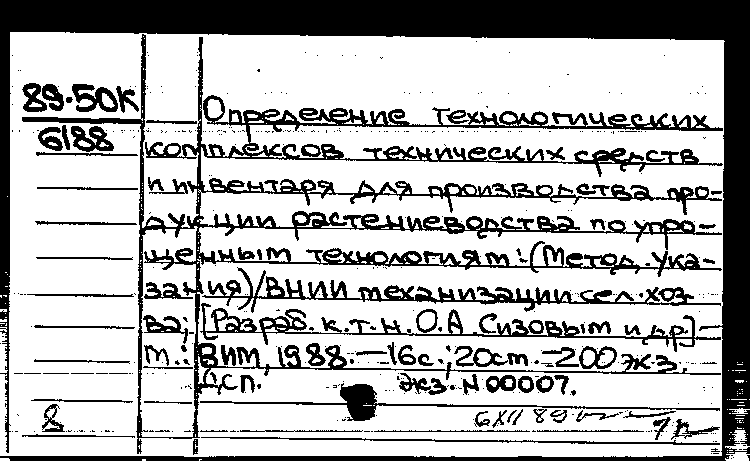 89-50К
6188
Определение технологических
комплексов технических средств
и инвентаря для производства про-
дукции растениеводства по упро-
щенным технологиям: (Метод. ука-
зания)/ВНИИ механизации сел. хоз-
ва; [Разраб. к.т.н. О.А. Сизовым и др.] –
М.: ВИМ, 1988. – 16с.; 20см. – 200 экз.
ДСП. экз. N 00007.
8
6 XII 89